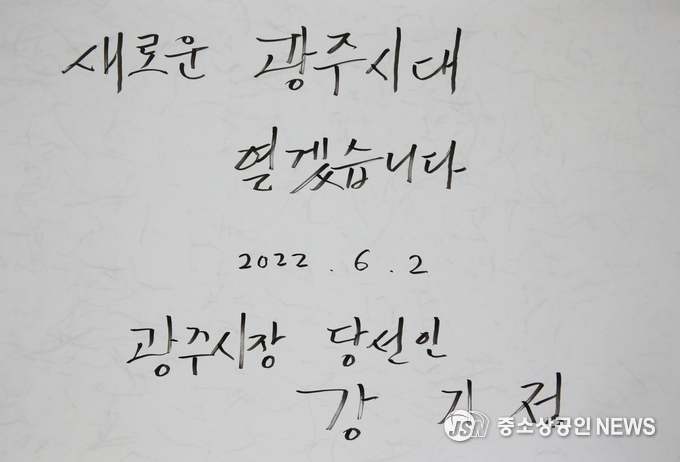 새로운 광주시대
열겠습니다
2022.6.2
광주시장 당선인
강 기 정
JSN 중소상공인NEWS